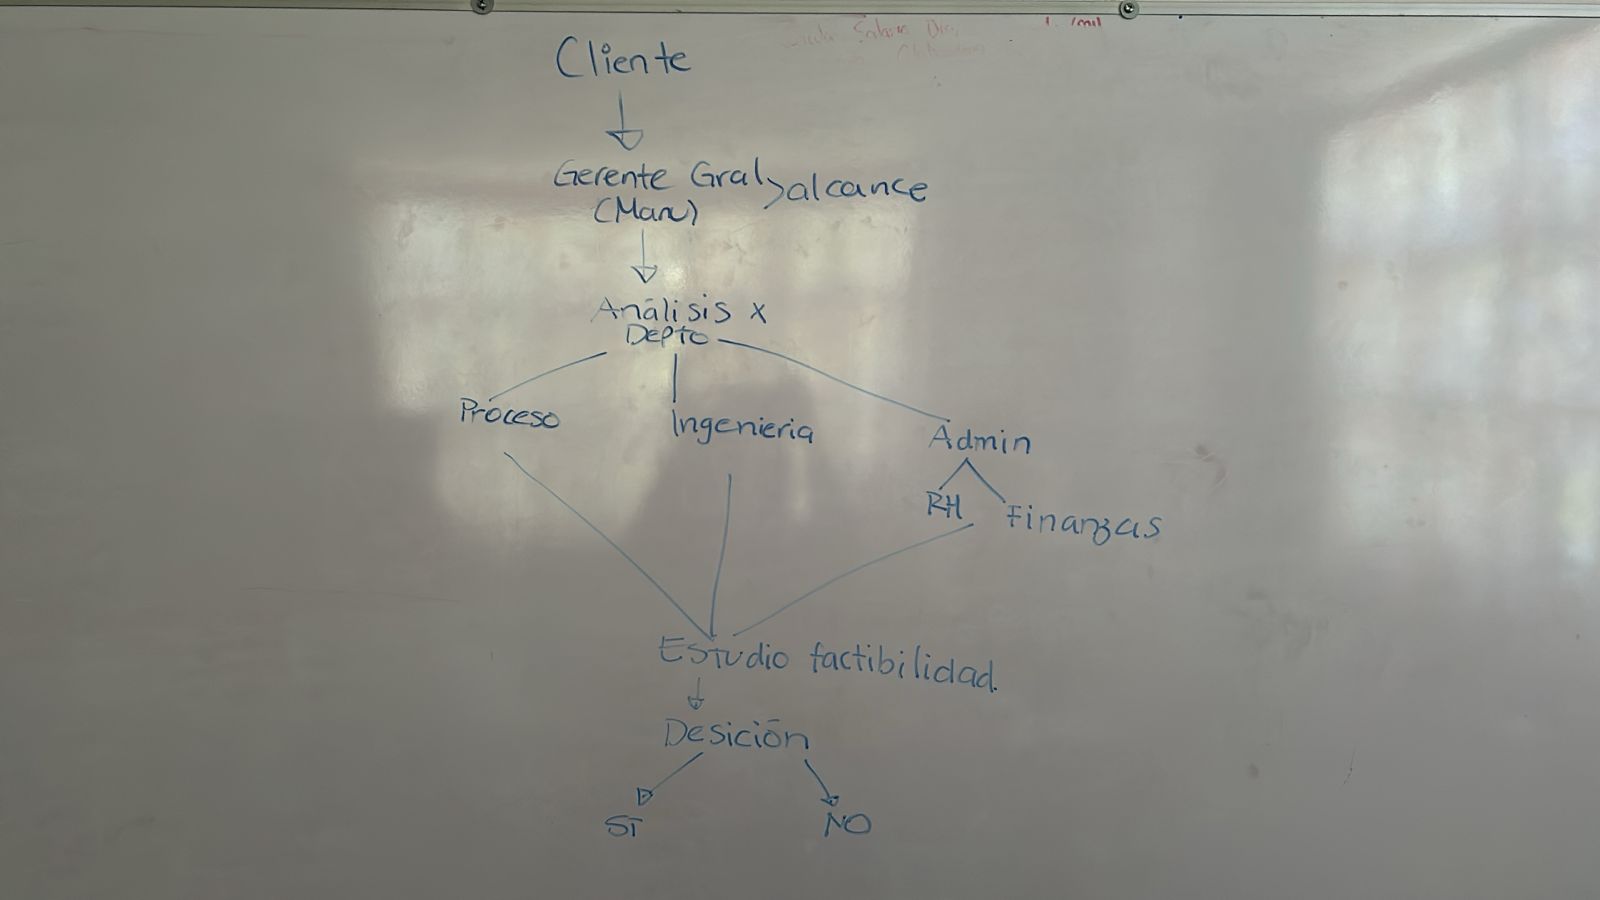 Cliente
Gerente Gral > alcance
(Manu)
Análisis x
Depto
Proceso
Ingenieria
Admin
RH
Finanzas
Estudio factibilidad.
Desición
SI
NO